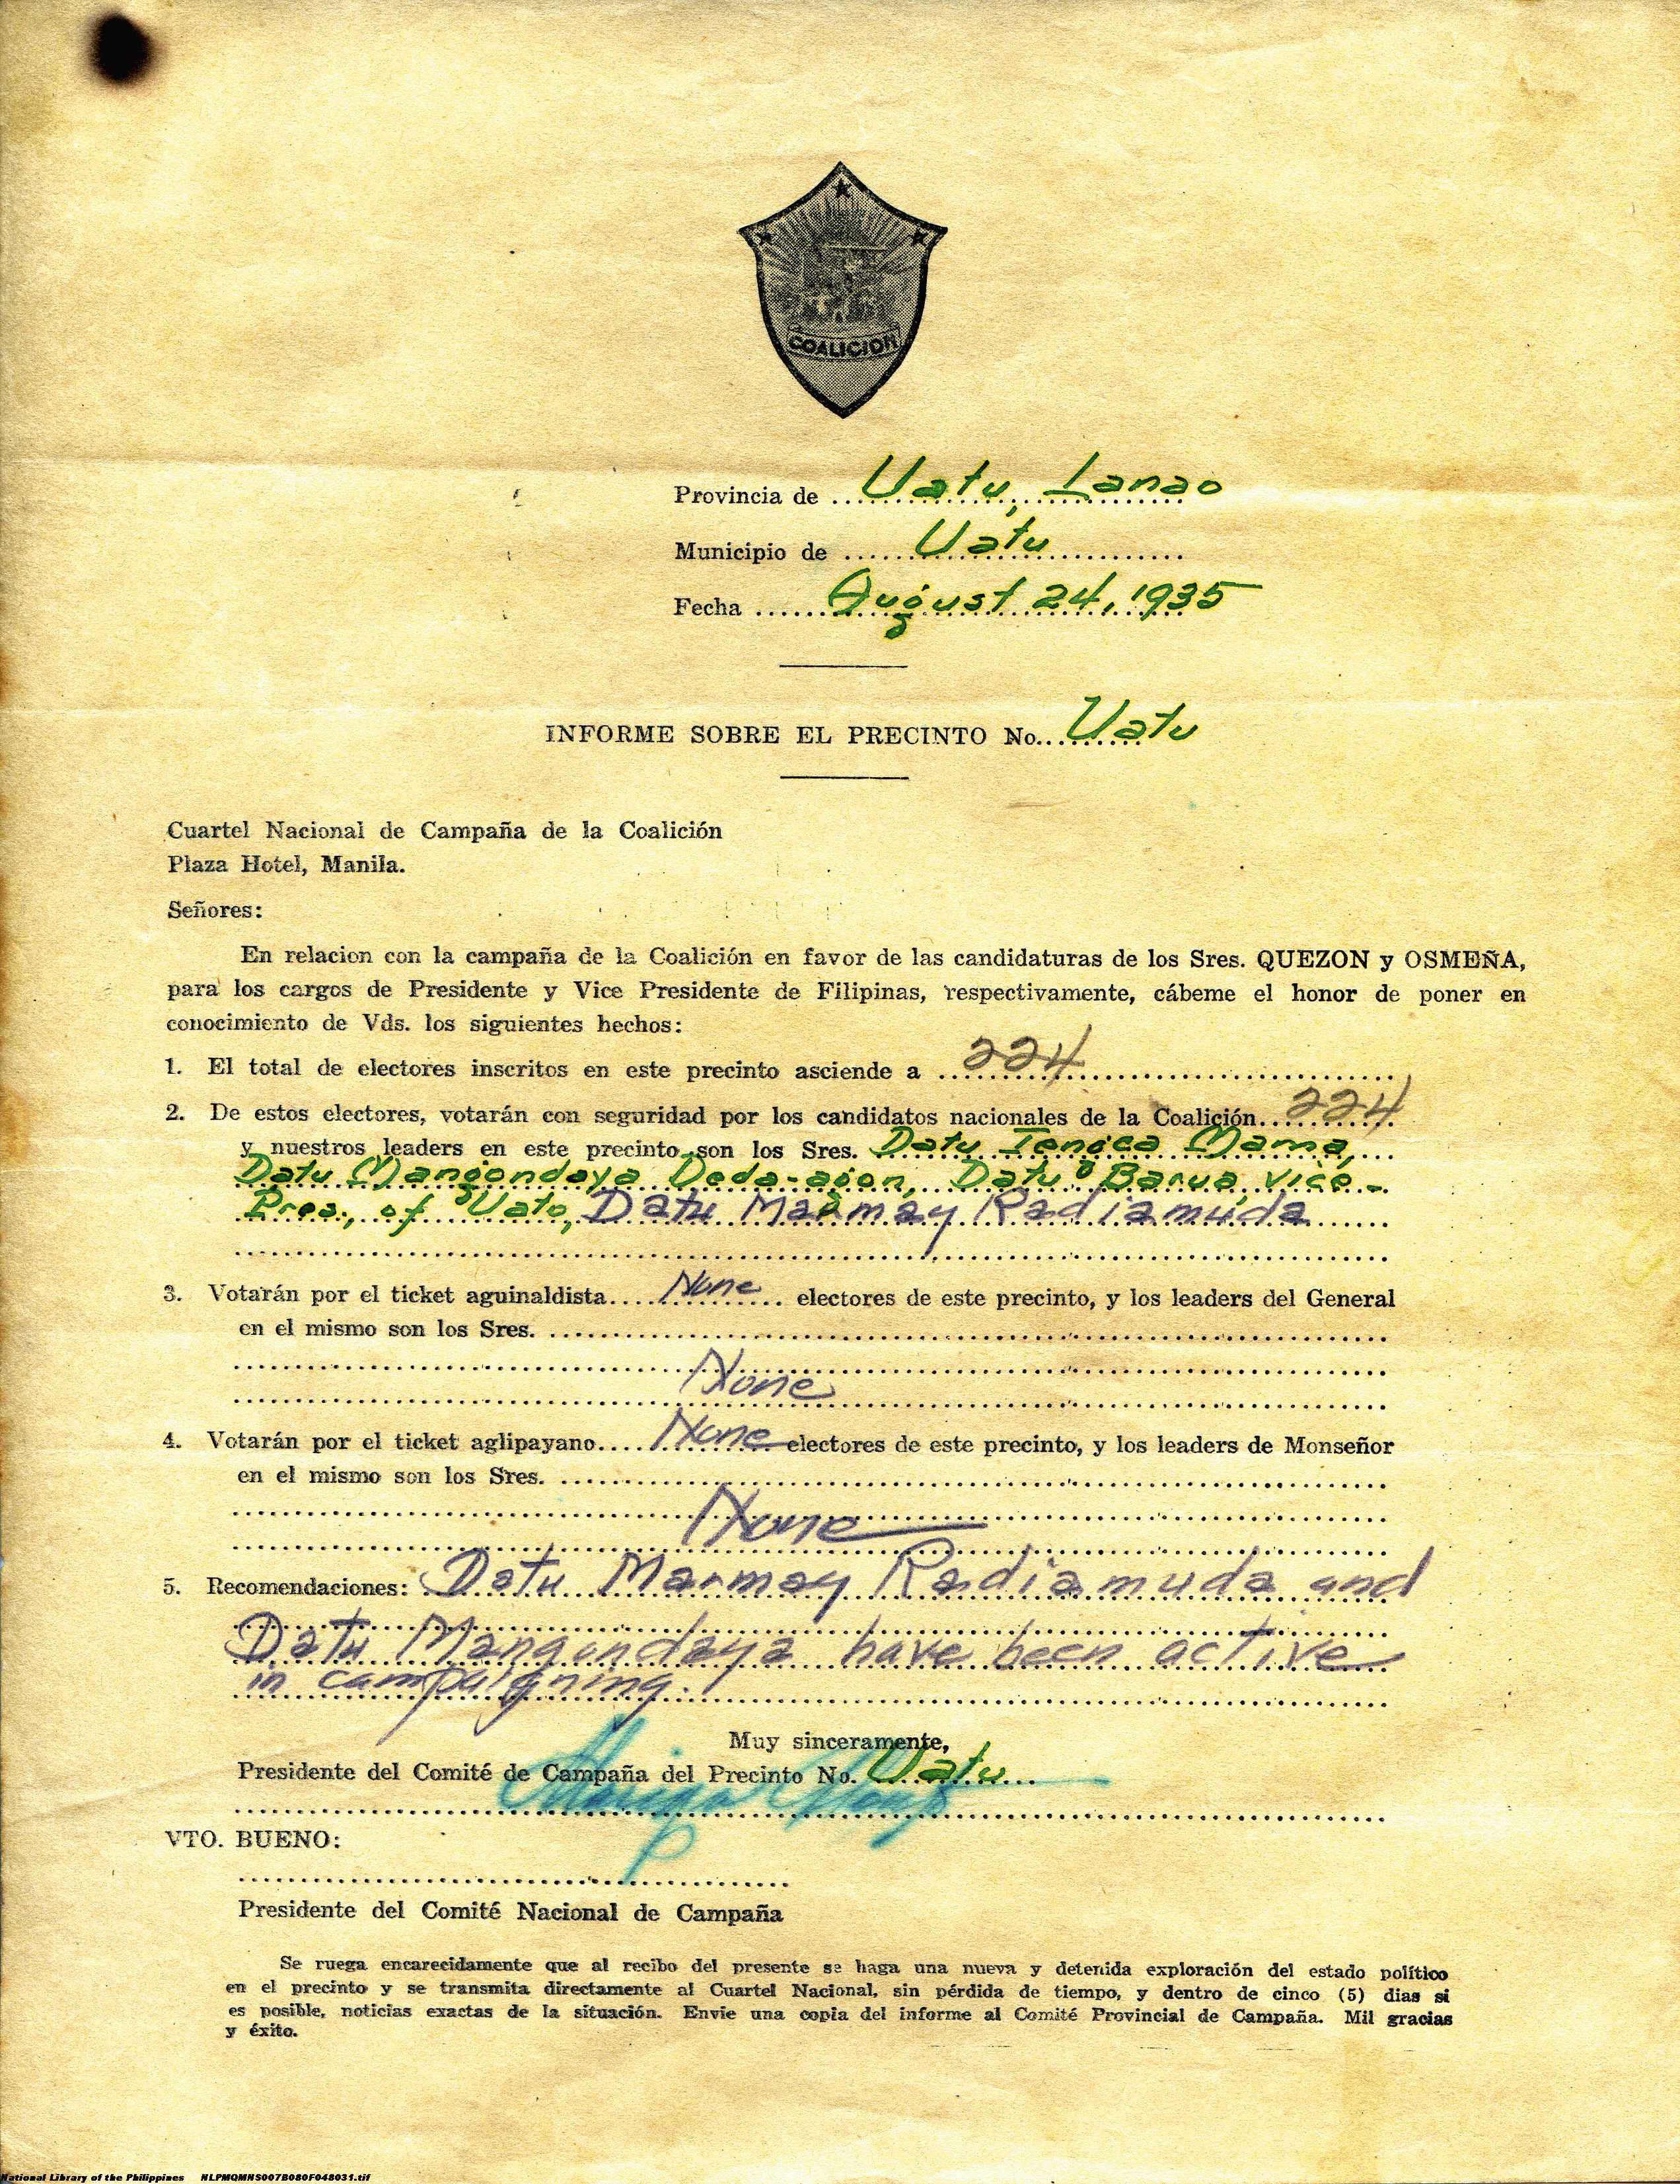 COALICION
Provincia de Uatu, Lanao
Municipio de Uatu
Fecha August 24, 1935
INFORME SOBRE EL PRECINTO No. Uatu
Cuartel Nacional de Campaña de la Coalición
Plaza Hotel, Manila.
Señores:
En relacion con la campaña de la Coalición en favor de las candidaturas de los Sres. QUEZON y OSMEÑA,
para los cargos de Presidente y Vice Presidente de Filipinas, respectivamente, cábeme el honor de poner en
conocimiento de Vds. los siguientes hechos:
1. El total de electores inscritos en este precinto asciende a 224
2. De estos electores, votarán con seguridad por los candidatos nacionales de la Coalición 224
y nuestros leaders en este precinto son los Sres. Datu Mama,
Datu Mangondaya Datu Barua, Vice-
Pres., of Uato, Datu Marmay Radiamuda
3. Votarán por el ticket aguinaldista None electores de este precinto, y los leaders del General
en el mismo son los Sres.
None
4. Votarán por el ticket aglipayano None electores de este precinto, y los leaders de Monseñor
en el mismo son los Sres.
None
5. Recomendaciones: Datu Marmay Radiamuda and
Datu Mangondaya have been active
in campaigning.
Muy sinceramente,
Presidente del Comité de Campaña del Precinto No. Uatu
VTO. BUENO:
Presidente del Comité Nacional de Campaña
Se ruega encarecidamente que al recibo del presente se haga una nueva y detenida exploración del estado político
en el precinto y se transmita directamente al Cuartel Nacional, sin pérdida de tiempo, y dentro de cinco (5) dias si
es posible, noticias exactas de la situación. Envie una copia del informe al Comité Provincial de Campaña. Mil gracias
y éxito.
National Library of the Philippines NLPMQMNS007B080F048031.tif